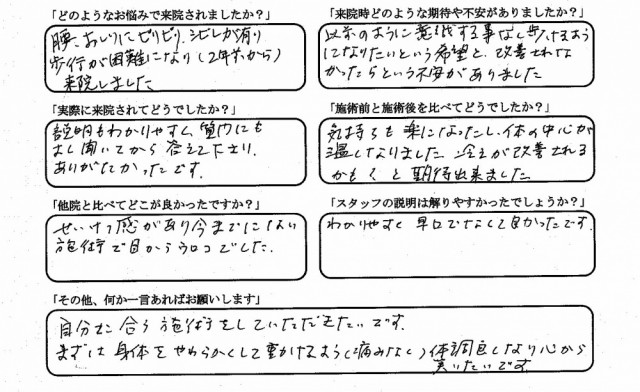 「どのようなお悩みで来院されましたか？」
腰、おしりにビリビリ、シビレが有り
歩行が困難になり（2年前から）
来院しました
「来院時どのような期待や不安がありましたか？」
以前のように意識する事なし歩けるよう
になりたいという希望と、改善されな
かったらという不安がありました
「実際に来院されてどうでしたか？」
説明もわかりやすく、質問にも
よし聞いてから答えて下さり、
ありがたかったです。
「施術前と施術後を比べてどうでしたか？」
気持ちも楽になったし、体の中心が
温しなりました 冷えが改善される
かも？と期待出来ました
「他院と比べてどこが良かったですか？」
せいけつ感があり今までにない
施術で目からウロコでした.
「スタッフの説明は解りやすかったでしょうか？」
わかりやすく早口でなくて良かったです.
「その他、何か一言あればお願いします」
自分に合う施術をしていただきたいです.
まずは身体をやわらかくして動けるように（痛みなく）体調良しなり心から
笑いたいです